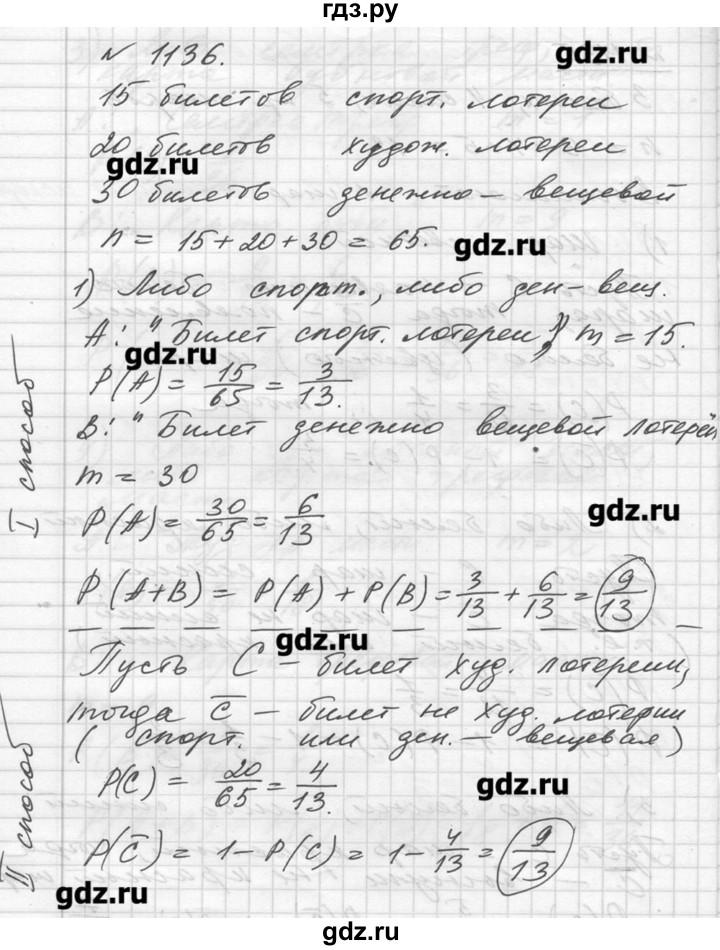 гдз.ру
№ 1136.
gdz.ru
15 билетов спорт. лотереи
20 билетов худож. лотереи
gdz.ru
30 билетов денежно – вещевой
n = 15 + 20 + 30 = 65.
gdz.ru
1) Либо спорт., либо ден – вещ.
А: "Билет спорт. лотереи," m = 15.
gdz.ru
P(A) = 15/65 = 3/13.
В: "Билет денежно вещевой лотереи
m = 30
I способ
P(A) = 30/65 = 6/13
gdz.ru
P(A+B) = P(A) + P(B) = 3/13 + 6/13 = 9/13
gdz.ru
Пусть С – билет худ. лотереии,
тогда C̅ – билет не худ. лотерии
( спорт. или ден. – вещевая)
P(C) = 20/65 = 4/13.
gdz.ru
II способ
P(C̅) = 1 – P(C) = 1 – 4/13 = 9/13
gdz.ru
gdz.ru